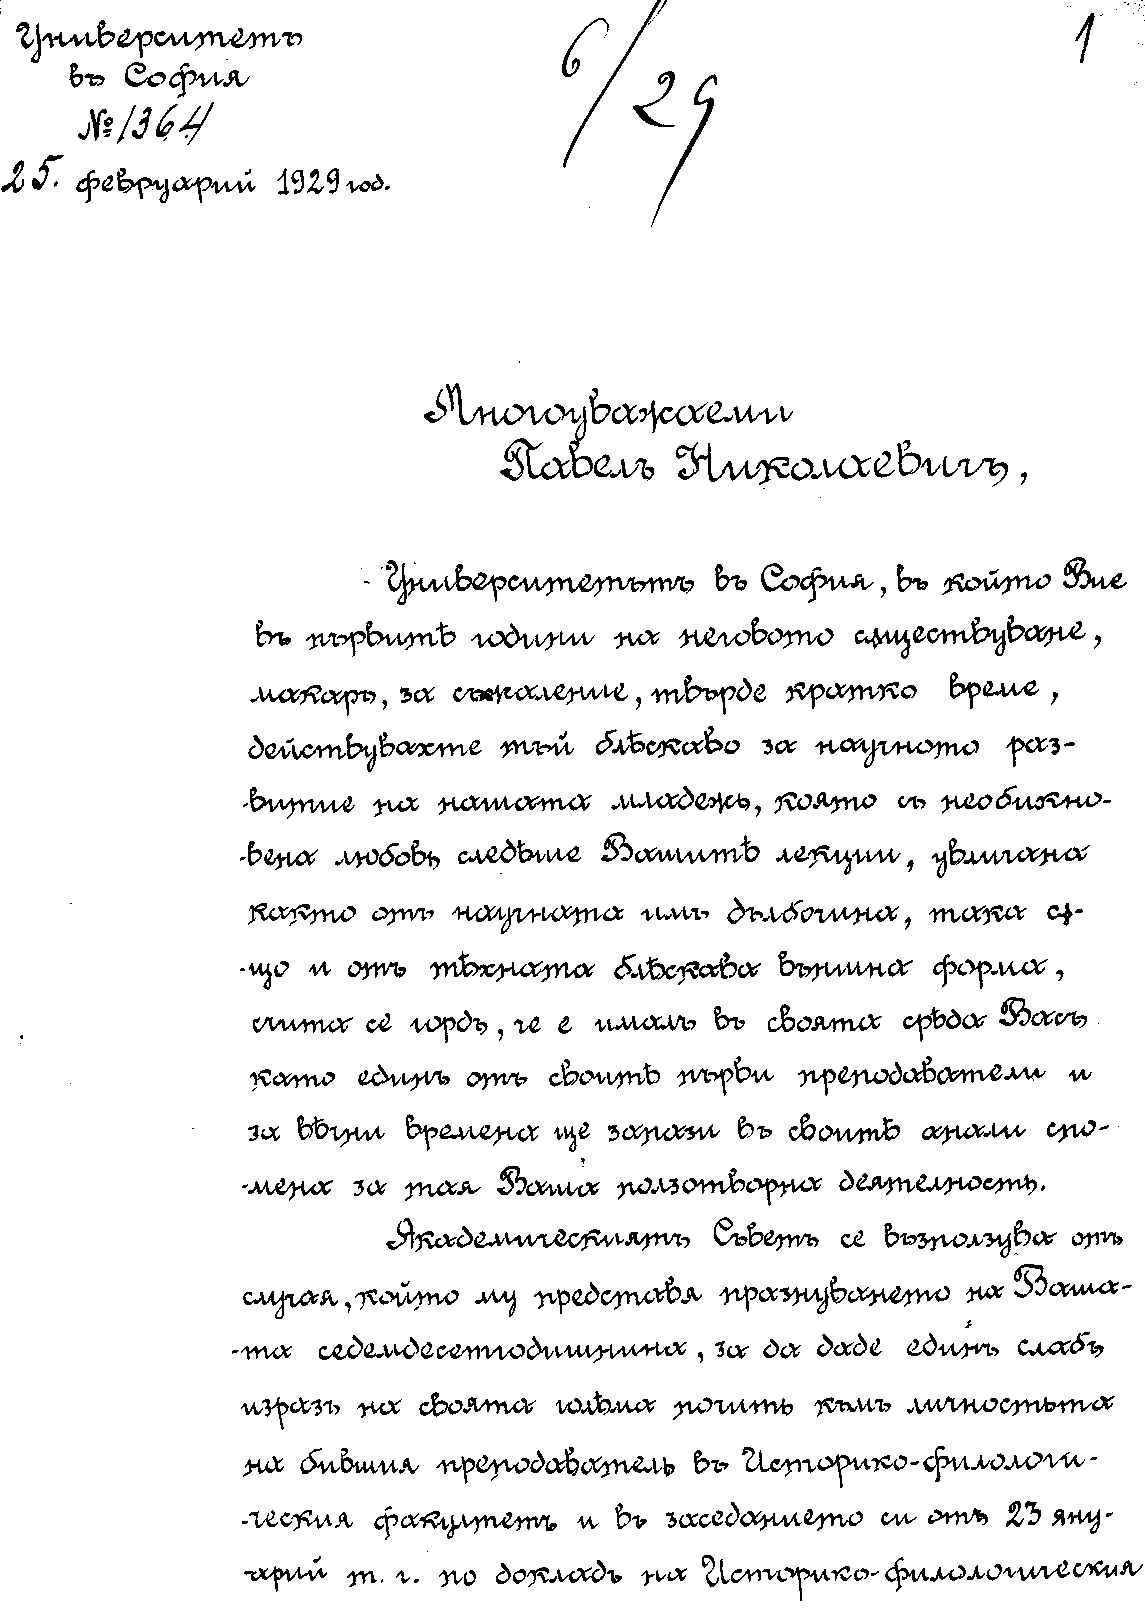 Университетъ
въ София
№ 1364
25. февруарий 1929 год.
6/29
1
Многоуважаеми
Павелъ Николаевичъ,
Университетътъ въ София, въ който Вие
въ първитѣ години на неговото сѫществуване,
макаръ, за съжаление, твърде кратко време,
действувахте тъй блѣскаво за научното раз-
-витие на нашата младежь, която съ необикно-
-вена любовь следѣше Вашитѣ лекции, увличана
както отъ научната имъ дълбочина, така сѫ-
-що и отъ тѣхната блѣскава външна форма,
счита се гордъ, че е ималъ въ своята срѣда Васъ
като единъ отъ своитѣ първи преподаватели и
за вѣчни времена ще запази въ своитѣ анали спо-
-мена за тая Ваша ползотворна деятелность.
Академическиятъ Съветъ се възползува отъ
случая, който му представя празнуването на Ваша-
-та седемдесетгодишнина, за да даде единъ слабъ
изразъ на своята голѣма почить къмъ личностьта
на бившия преподаватель въ Историко-филологи-
-ческия факултетъ и въ заседанието си отъ 23 яну-
арий т. г. по докладъ на Историко-филологическия